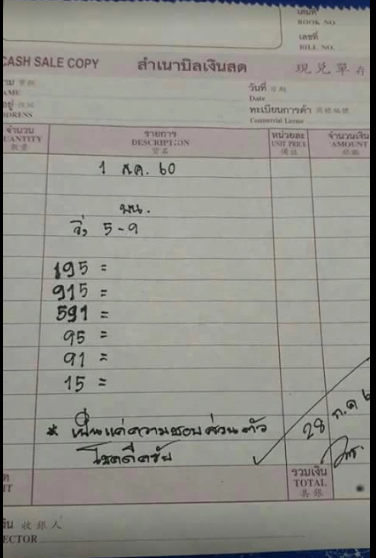 เล่มที่
BOOK NO.
เลขที่
BILL NO.
CASH SALE COPY สำเนาบิลเงินสด 現兌單
วันที่ 日期
Date
NAME
ทะเบียนการค้า
Commercial License
ADDRESS
จำนวน รายการ หน่วยละ จำนวนเงิน
QUANTITY DESCRIPTION UNIT PRICE AMOUNT
数量 貨名 價銀
1 ส.ค. 60
บน.
วิ่ง 5-9
195 =
915 =
591 =
95 =
91 =
15 =
* เป็นแค่ความชอบส่วนตัว
โชคดีครับ
28 ก.ค 6
รวมเงิน
TOTAL
共銀
收銀人
ECTOR